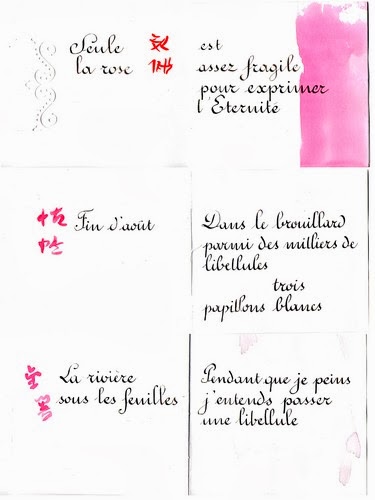 Seule
la rose
est
assez fragile
pour exprimer
l'Eternité
Fin d'août
Dans le brouillard
parmi des milliers de
libellules
trois
papillons blancs
La rivière
sous les feuilles
Pendant que je peins
j'entends passer
une libellule